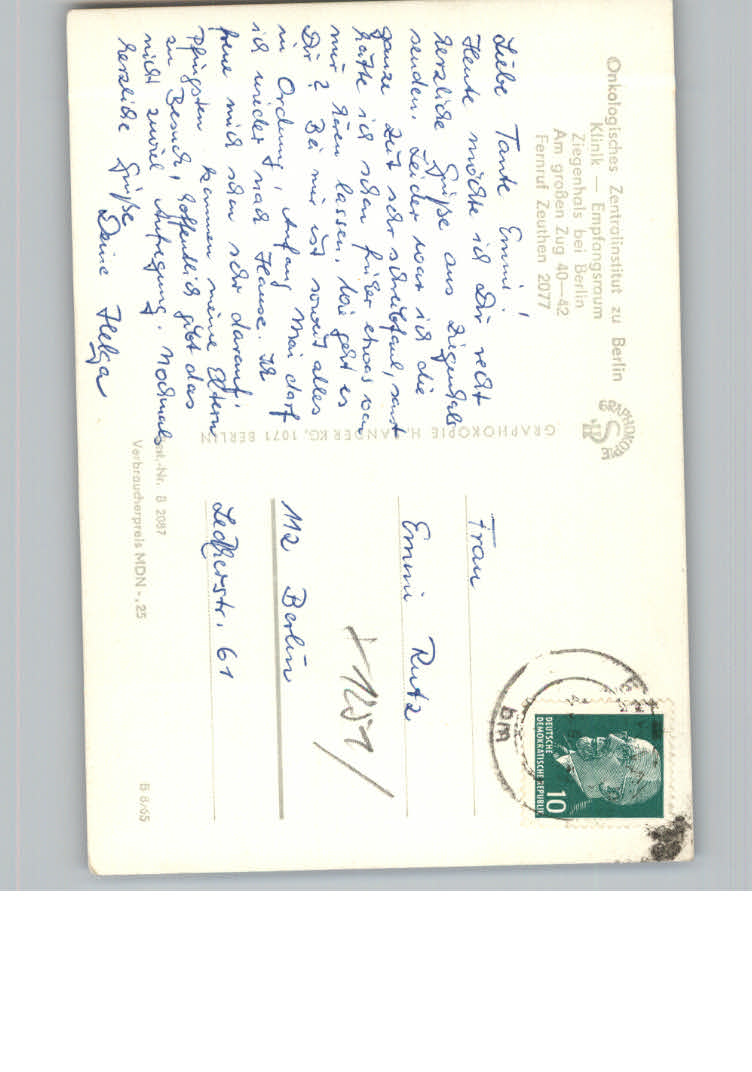 Onkologisches Zentralinstitut zu Berlin
Klinik — Empfangsraum
Ziegenhals bei Berlin
Am großen Zug 40—42
Fernruf Zeuthen 2077
Liebe Tante Emmi!
Heute möchte ich Dir recht
herzliche Grüße aus Ziegenhals
senden. Leider war ich die
ganze Zeit sehr schreibfaul, sonst
hätte ich schon früher etwas von
mir hören lassen. Wie geht es
Dir? Bei mir ist soweit alles
in Ordnung, Anfang Mai darf
ich wieder nach Hause. Ich
freue mich schon sehr darauf.
Pfingsten kommen meine Eltern
zu Besuch, hoffentlich gibt das
nicht zuviel Aufregung. Nochmals
herzliche Grüße
Deine Helga
GRAPHOKOPIE
GRAPHOKOPIE H. SANDER KG, 1071 BERLIN
-Nr. B 2087
Verbraucherpreis MDN -,25
DEUTSCHE
DEMOKRATISCHE REPUBLIK
10
bm
Frau
Emmi Rutz
1251
112 Berlin
Lederstr. 61
B 8/65